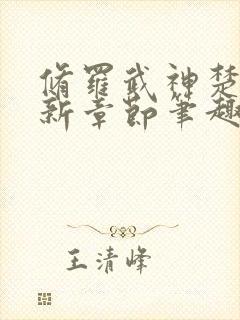 脩羅武神楚
新章節筆趣
王清峰